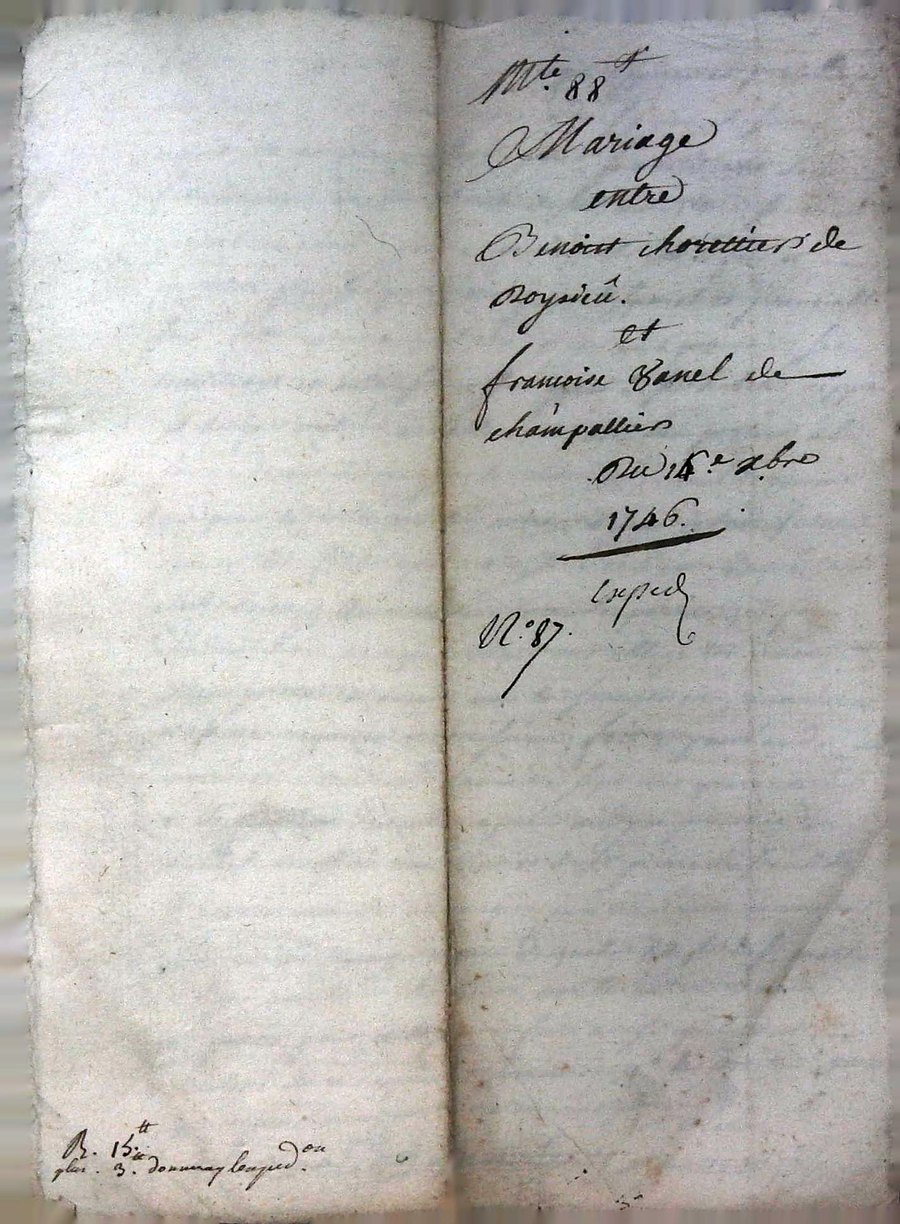 Mte. 88tt
Mariage
entre
Benoist chorettier de
Roysieü.
et
francoise Vanel de
champallier
Du 14.e xbre
1746.
Exped
N.o 87.
R. 15.tt
plus. 3.tt donneray lexped.on